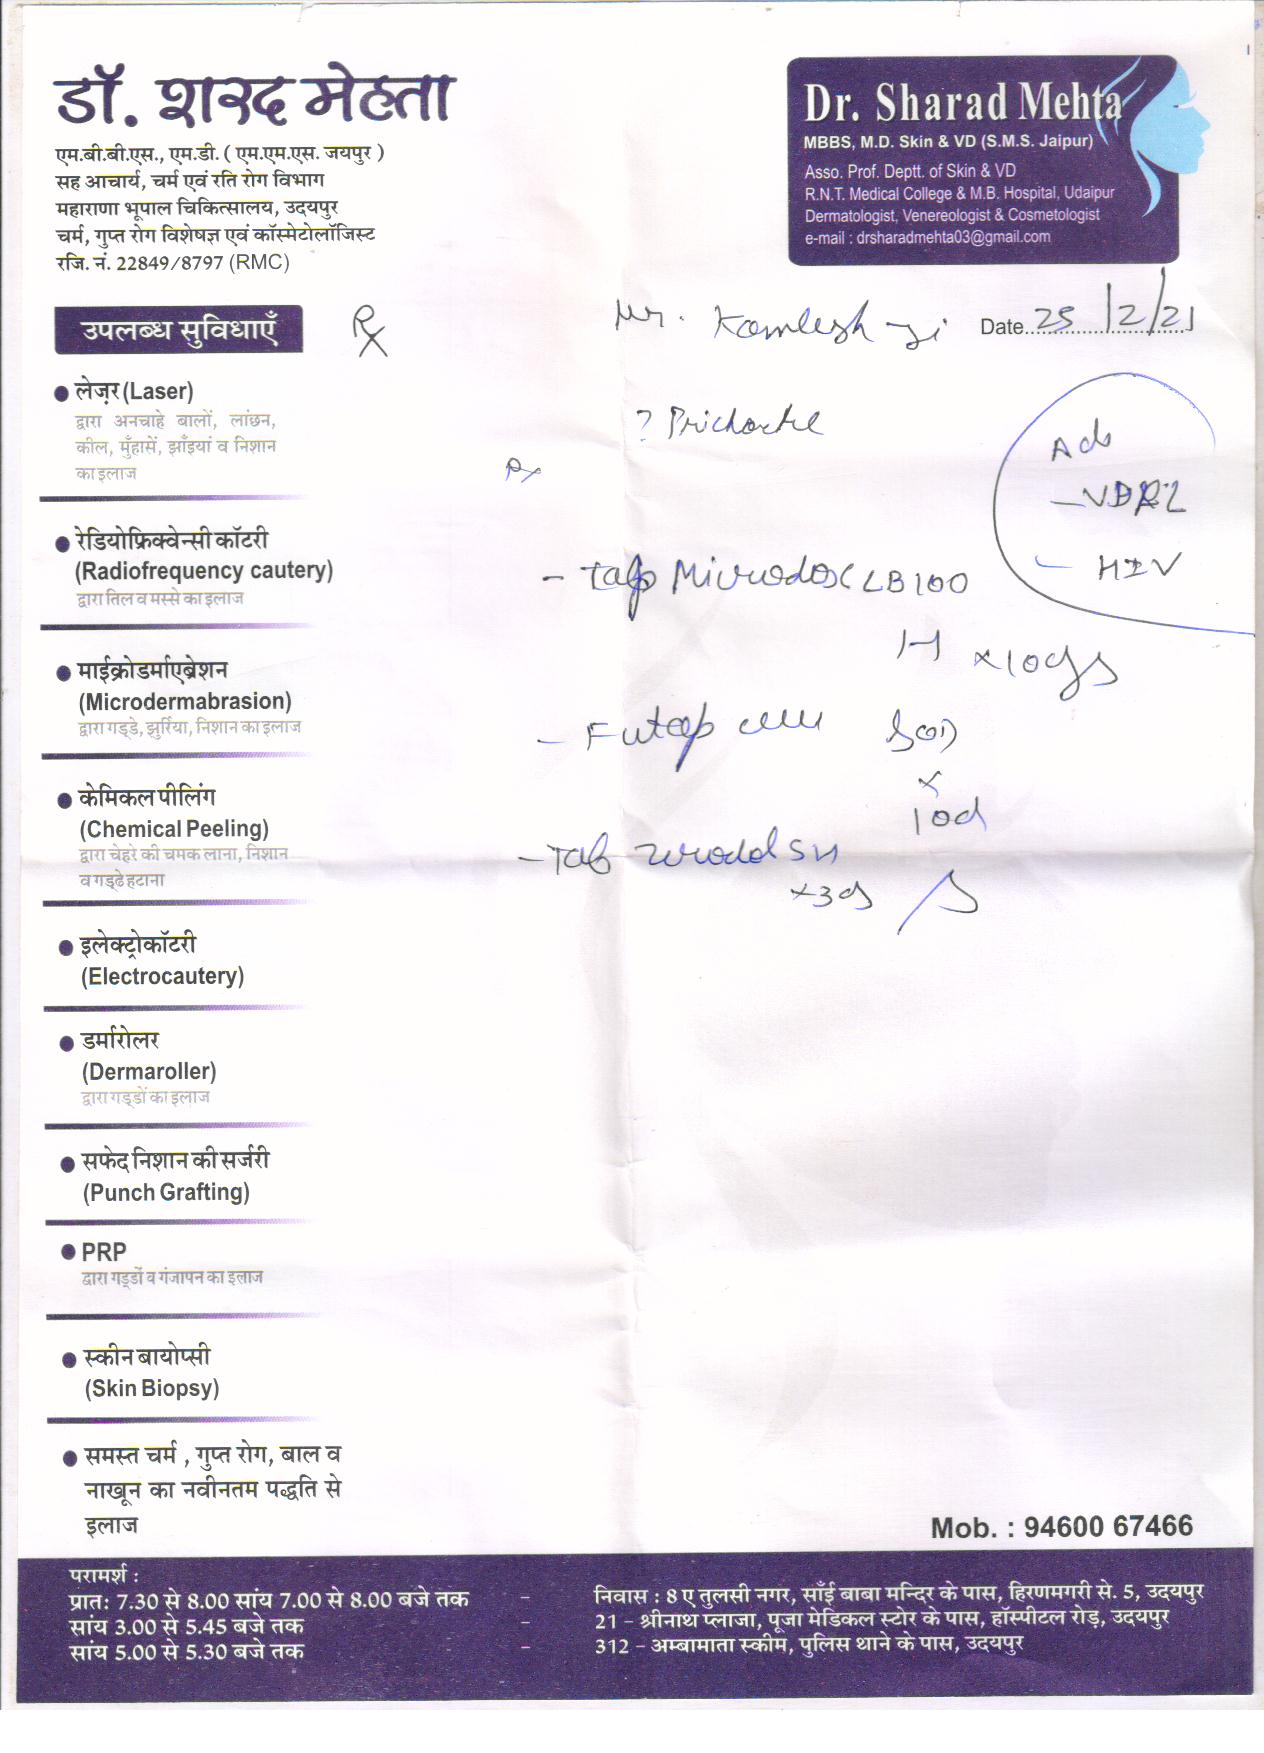 डॉ. शरद मेहता
एम.बी.बी.एस., एम.डी. ( एम.एम.एस. जयपुर )
सह आचार्य, चर्म एवं रति रोग विभाग
महाराणा भूपाल चिकित्सालय, उदयपुर
चर्म, गुप्त रोग विशेषज्ञ एवं कॉस्मेटोलॉजिस्ट
रजि. नं. 22849/8797 (RMC)
Dr. Sharad Mehta
MBBS, M.D. Skin & VD (S.M.S. Jaipur)
Asso. Prof. Deptt. of Skin & VD
R.N.T. Medical College & M.B. Hospital, Udaipur
Dermatologist, Venereologist & Cosmetologist
e-mail : drsharadmehta03@gmail.com
Mr. Kamlesh ji Date..25/2/21
Rx
Adv
- VDRL
- HIV
Rx
- Tab Microdox LB 100
1-1 x 10 dys
x
10d
- Tab
x 3d
उपलब्ध सुविधाएँ
लेज़र (Laser)
द्वारा अनचाहे बालों, लांछन,
कील, मुँहासें, झाँइयां व निशान
का इलाज
रेडियोफ्रिक्वेन्सी कॉटरी
(Radiofrequency cautery)
द्वारा तिल व मस्से का इलाज
माईक्रोडर्माएब्रेशन
(Microdermabrasion)
द्वारा गड्डे, झुर्रिया, निशान का इलाज
केमिकल पीलिंग
(Chemical Peeling)
द्वारा चेहरे की चमक लाना, निशान
व गड्ढे हटाना
इलेक्ट्रोकॉटरी
(Electrocautery)
डर्मारोलर
(Dermaroller)
द्वारा गड्डों का इलाज
सफेद निशान की सर्जरी
(Punch Grafting)
PRP
द्वारा गड्डों व गंजापन का इलाज
स्कीन बायोप्सी
(Skin Biopsy)
समस्त चर्म , गुप्त रोग, बाल व
नाखून का नवीनतम पद्धति से
इलाज
Mob. : 94600 67466
परामर्श :
प्रातः 7.30 से 8.00 सांय 7.00 से 8.00 बजे तक - निवास : 8 ए तुलसी नगर, साँई बाबा मन्दिर के पास, हिरणमगरी से. 5, उदयपुर
सांय 3.00 से 5.45 बजे तक - 21 - श्रीनाथ प्लाजा, पूजा मेडिकल स्टोर के पास, हॉस्पीटल रोड़, उदयपुर
सांय 5.00 से 5.30 बजे तक - 312 - अम्बामाता स्कीम, पुलिस थाने के पास, उदयपुर